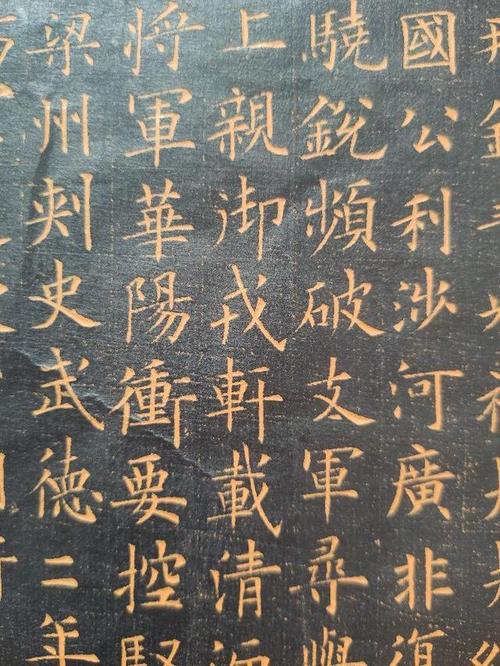 國公利涉河廣非復
驍銳頻破支軍尋
上親御戎軒載清海
将軍華陽衝要控
梁州刾史武德二年